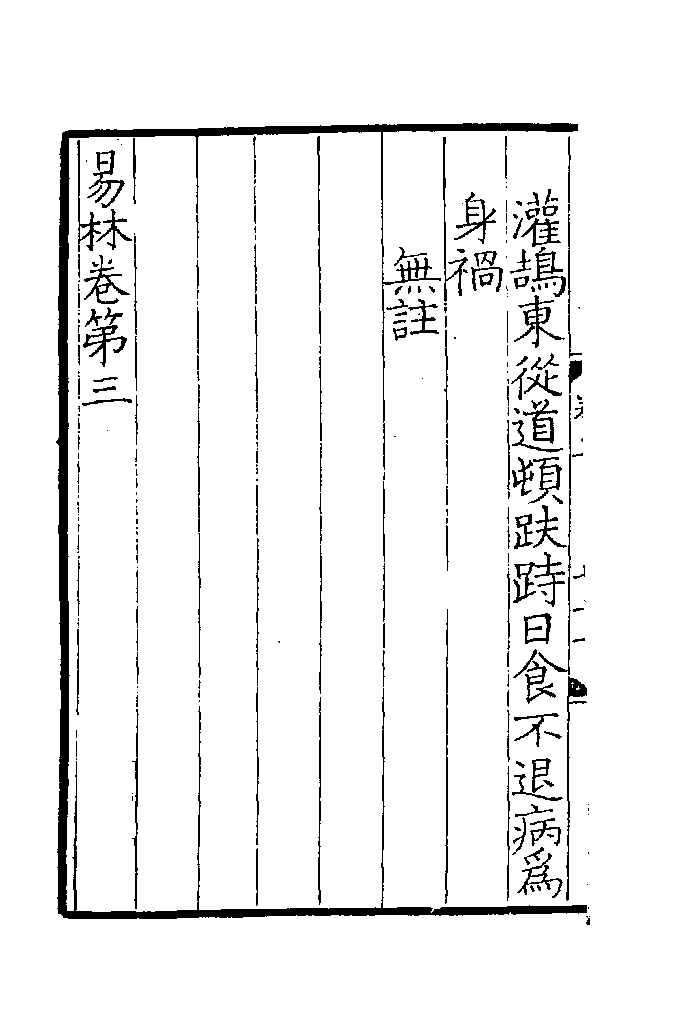 灌鵠東從道頓跌跱日食不退病爲
身禍
無註
易林卷第三